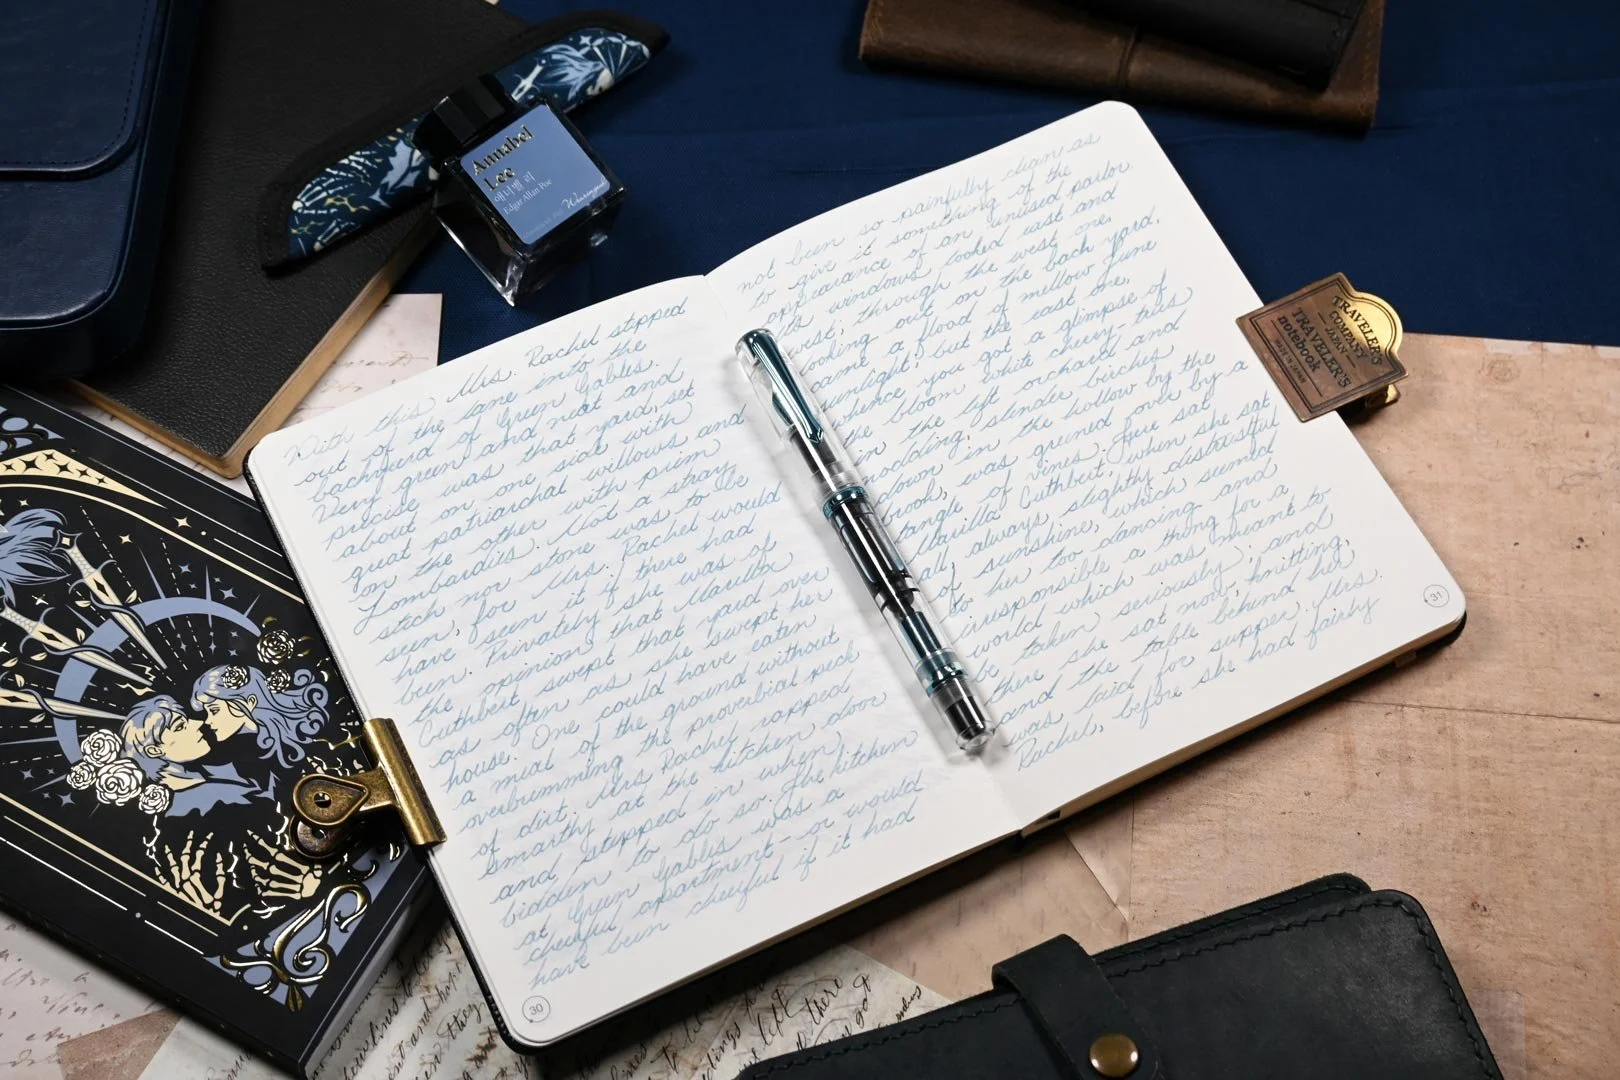 Annabel
Lee
애너벨 리
Edgar Allan Poe
Wearingeul
With this Mrs. Rachel stepped
out of the lane into the
backyard of Green Gables.
Very green and neat and
precise was that yard, set
about on one side with
great patriarchal willows and
on the other with prim
Lombardits. Not a stray
stick nor stone was to be
seen, for Mrs. Rachel would
have seen it if there had
been. Privately she was of
the opinion that Marilla
Cuthbert swept that yard over
as often as she swept her
house. One could have eaten
a meal of the ground without
overbrimming the proverbial peck
of dirt. Mrs Rachel rapped
smartly at the kitchen door
and stepped in when
bidden to do so. The kitchen
at Green Gables was a
cheerful apartment - or would
have been cheerful if it had
30
not been so painfully clean as
to give it something of the
appearance of an unused parlor
Its windows looked east and
west; through the west one,
looking out on the back yard,
came a flood of mellow June
sunlight; but the east one,
whence you got a glimpse of
the bloom white cherry-trees
in the left orchard and
nodding, slender birches
down in the hollow by the
brook, was greened over by a
tangle of vines. Here sat
Marilla Cuthbert, when she sat
at all, always slightly distrustful
of sunshine, which seemed
to her too dancing and
irresponsible a thing for a
world which was meant to
be taken seriously; and
there she sat now, knitting,
and the table behind her
was laid for supper. Mrs.
Rachel, before she had fairly
31
TRAVELER'S
COMPANY
JAPAN
TRAVELER'S
notebook
MADE IN JAPAN